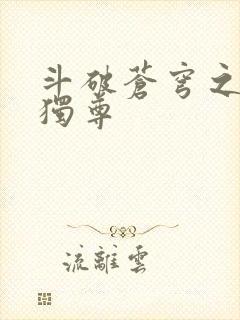 斗破蒼穹之
獨尊
流離雲